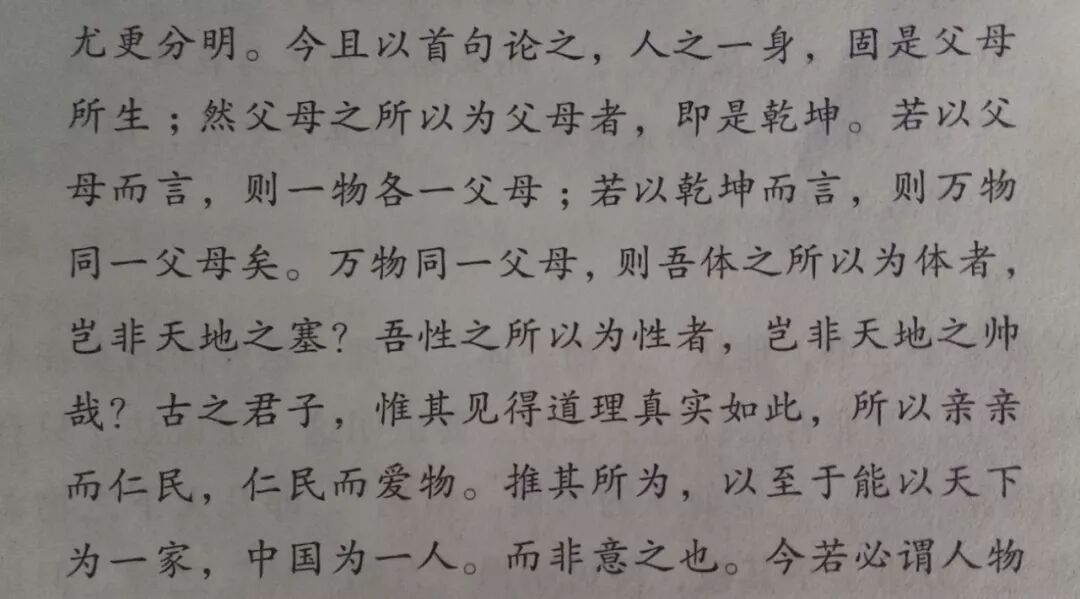 尤更分明。今且以首句论之，人之一身，固是父母
所生；然父母之所以为父母者，即是乾坤。若以父
母而言，则一物各一父母；若以乾坤而言，则万物
同一父母矣。万物同一父母，则吾体之所以为体者，
岂非天地之塞？吾性之所以为性者，岂非天地之帅
哉？古之君子，惟其见得道理真实如此，所以亲亲
而仁民，仁民而爱物。推其所为，以至于能以天下
为一家，中国为一人。而非意之也。今若必谓人物